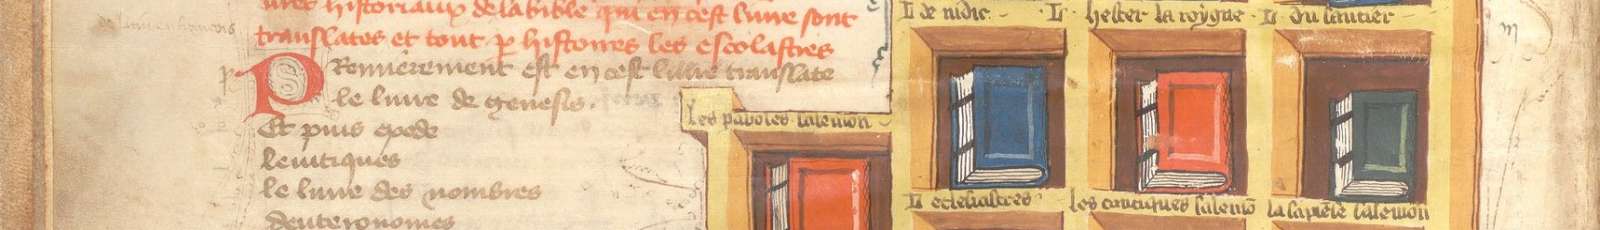 ures historiaux de la bible qui en cest liure sont
translates et tout p histoires les escolastres
Premierement est en cest liure translate
le liure de genesis.
Et puis exode
leuitiques
le liure des nombres
deuteronomes
L de iudic
L hester la royne
L du sautier
Les paboles salemon
L eclesiastres
les cantiques salemo
la sapiēte salemon